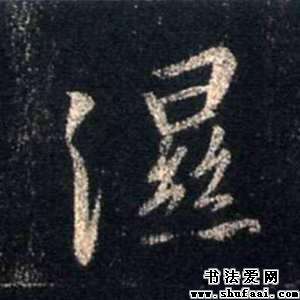 濕
书法爱网
www.shufaai.com